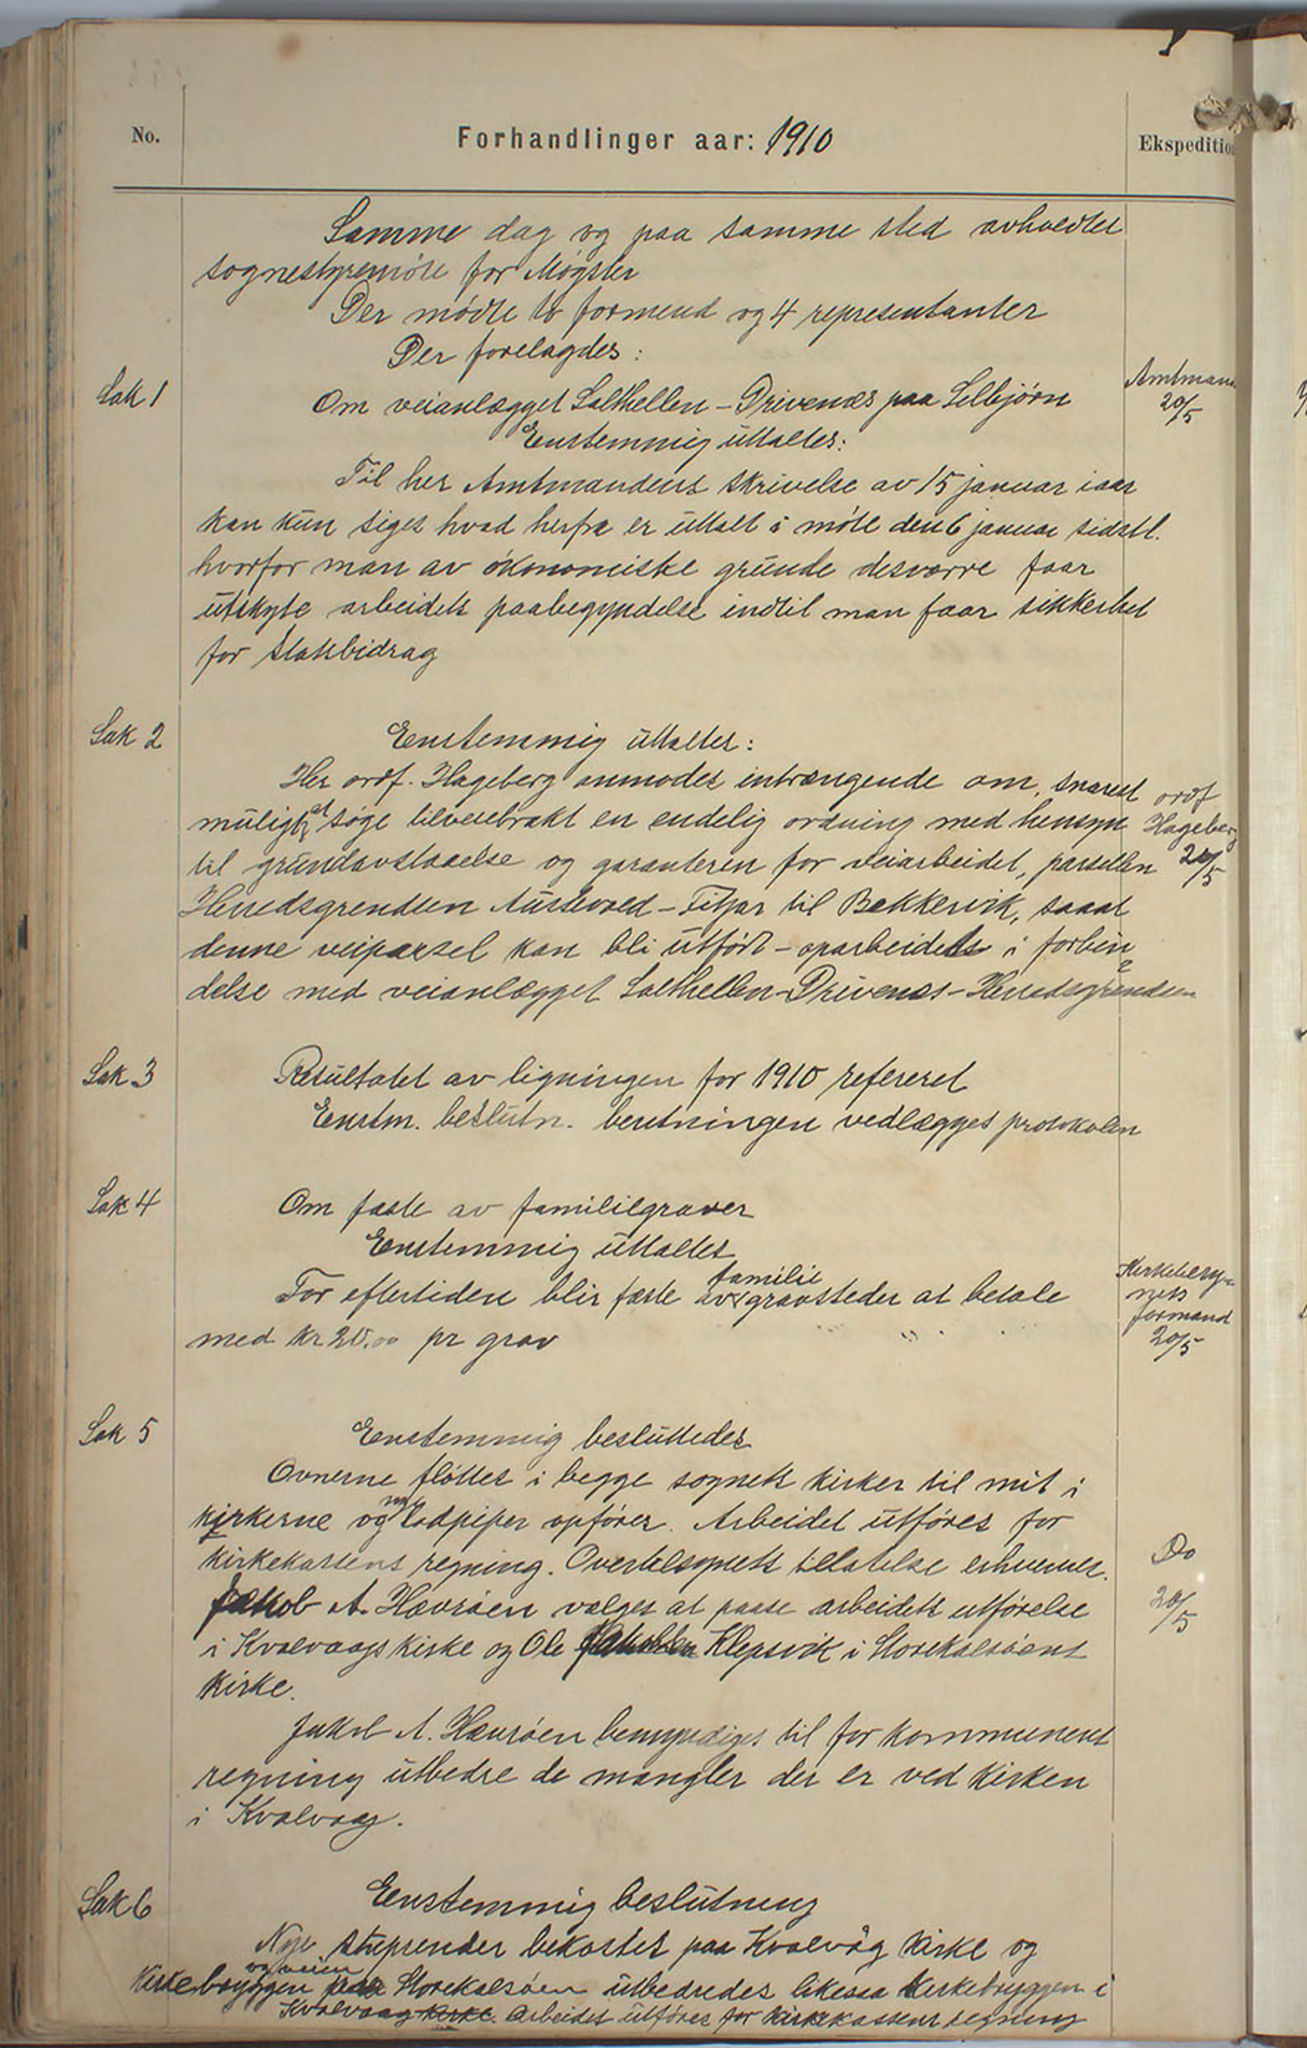 No.
Forhandlinger aar: 1910
Ekspeditio
Samme dag og paa samme sted avholdtes
sognestyremöte for Møgster
Der mødte to formend og 4 representanter
Der forelagdes:
Sak 1
Om veianlægget Salthellen - Drivenes paa Selbjørn
Amtmann
20/5
Enstemmig uttaltes:
Til her Amtmandens skrivelse av 15 januar iaar
kan kun siges hvad herfra er uttalt i möte den 6 januar sidstl.
hvorfor man av ökonomiske grunde desværre faar
utskyte arbeidets paabegyndelse indtil man faar sikkerhet
for Statsbidrag
Sak 2
Enstemmig uttaltes:
Her ordf. Hageberg anmodes intrængende om, snarest
muligt at söge tilveiebrakt en endelig ordning med hensyn
til grundavstaaelse og garanteren for veiarbeidet, parsellen
ordf
Hageberg
20/5
Herredsgrendsen Austevold - Fitjar til Bekkervik, saaat
denne veiparsel kan bli utført - oparbeidets i forbin
delse med veianlægget Salthellen - Drivenes - Herredsgrendsen
Sak 3
Resultatet av ligningen for 1910 refereret
Enstm. beslutn. beretningen vedlægges protokolen
Sak 4
Om fæste av familiegraver
Enstemmig uttaltes
For eftertiden blir fæste av familie gravsteder at betale
med kr 20.00 pr grav
Kirkeberg-
nets
formand
20/5
Sak 5
Enstemmig besluttedes
Ovnerne flöttes i begge sognets kirker til mit i
kirkerne og nye lodpiper opföres. Arbeidet utföres for
kirkekassens regning. Overtilsynets tillatelse erhverves.
Jakob A. Havröen vælges at paase arbeidets utförelse
i Kvalvaags kirke og Ole Klepsvik i Storekalsöens
kirke.
Do
20/5
Jakob A. Havröen bemyndiges til for kommunens
regning utbedre de mangler der er ved kirken
i Kvalvaag.
Sak 6
Enstemmig beslutning
Nye stuprender bekostes paa Kvalvåg kirke og
Kirkebryggen og veien paa Storekalsöen utbedredes likesaa kirkebryggen i
Kvalvaag kirke. Arbeidet utföres for kirkekassens regning